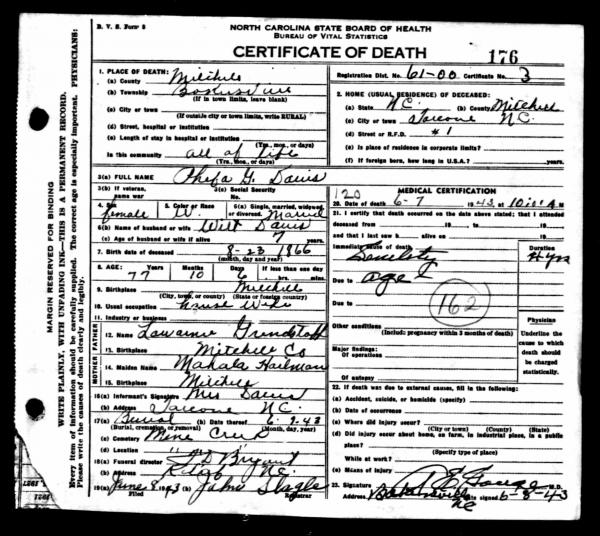 B. V. S. Form 8
NORTH CAROLINA STATE BOARD OF HEALTH
BUREAU OF VITAL STATISTICS
CERTIFICATE OF DEATH
176
MARGIN RESERVED FOR BINDING
WRITE PLAINLY, WITH UNFADING INK—THIS IS A PERMANENT RECORD.
Every item of information should be carefully supplied. The correct age is especially important. PHYSICIANS:
Please write the causes of death clearly and legibly.
1. PLACE OF DEATH:
(a) County Mitchell
(b) Township
(If in town limits, leave blank)
(c) City or town
(If outside city or town limits, write RURAL)
(d) Street, hospital or institution
(e) Length of stay in hospital or institution
(Yrs., mos., or days)
In this community all of life
(Yrs., mos., or days)
Registration Dist. No. 61-00 Certificate No. 3
2. HOME (USUAL RESIDENCE) OF DECEASED:
(a) State N.C. (b) County Mitchell
(c) City or town Toecane N.C.
(d) Street or R.F.D. #1
(e) Is place of residence in corporate limits?
(f) If foreign born, how long in U.S.A.? yrs.
3(a) FULL NAME G. Davis
3(b) If veteran, name war
3(c) Social Security No.
4. Sex female
5. Color or Race W.
6(a) Single, married, widowed, or divorced. Married
6(b) Name of husband or wife Wilt Davis
6(c) Age of husband or wife if alive 7 years
7. Birth date of deceased 8-23 1866
(month, day and year)
8. AGE: Years 77 Months 10 Days 6 If less than one day
hrs. min.
9. Birthplace Mitchell
(City, town, or county) (State or foreign country)
10. Usual occupation House Wife
11. Industry or business
FATHER
12. Name Grindstaff
13. Birthplace Mitchell Co
MOTHER
14. Maiden Name Mahala
15. Birthplace Mitchell
16(a) Informant's Signature Mrs Davis
(b) Address Toecane N.C.
17(a) Burial (b) Date thereof 6-9-43
(Burial, cremation, or removal) (Month, day, year)
(c) Cemetery Mine Creek
(d) Location
18(a) Funeral director Bryant
(b) Address N.C.
19(a) June 8 1943 (b) John Slagle
Filed Registrar
MEDICAL CERTIFICATION
120
20. Date of death 6-7 1943 10:00 A M
21. I certify that death occurred on the above stated; that I attended
deceased from , 19 , to , 19
and that I last saw h alive on , 19
Immediate cause of death Senelity
Duration
4 yrs
Due to age
162
Due to
Other conditions
(Include: pregnancy within 3 months of death)
Major findings:
Of operations
Of autopsy
Physician
Underline the cause to which death should be charged statistically.
22. If death was due to external causes, fill in the following:
(a) Accident, suicide, or homicide (specify)
(b) Date of occurrence
(c) Where did injury occur?
(City or town) (County) (State)
(d) Did injury occur about home, on farm, in industrial place, in a public place?
(Specify type of place)
While at work?
(e) Means of injury
23. Signature E. Gouge M.D.
Address Bakersville NC Date signed 6-8-43